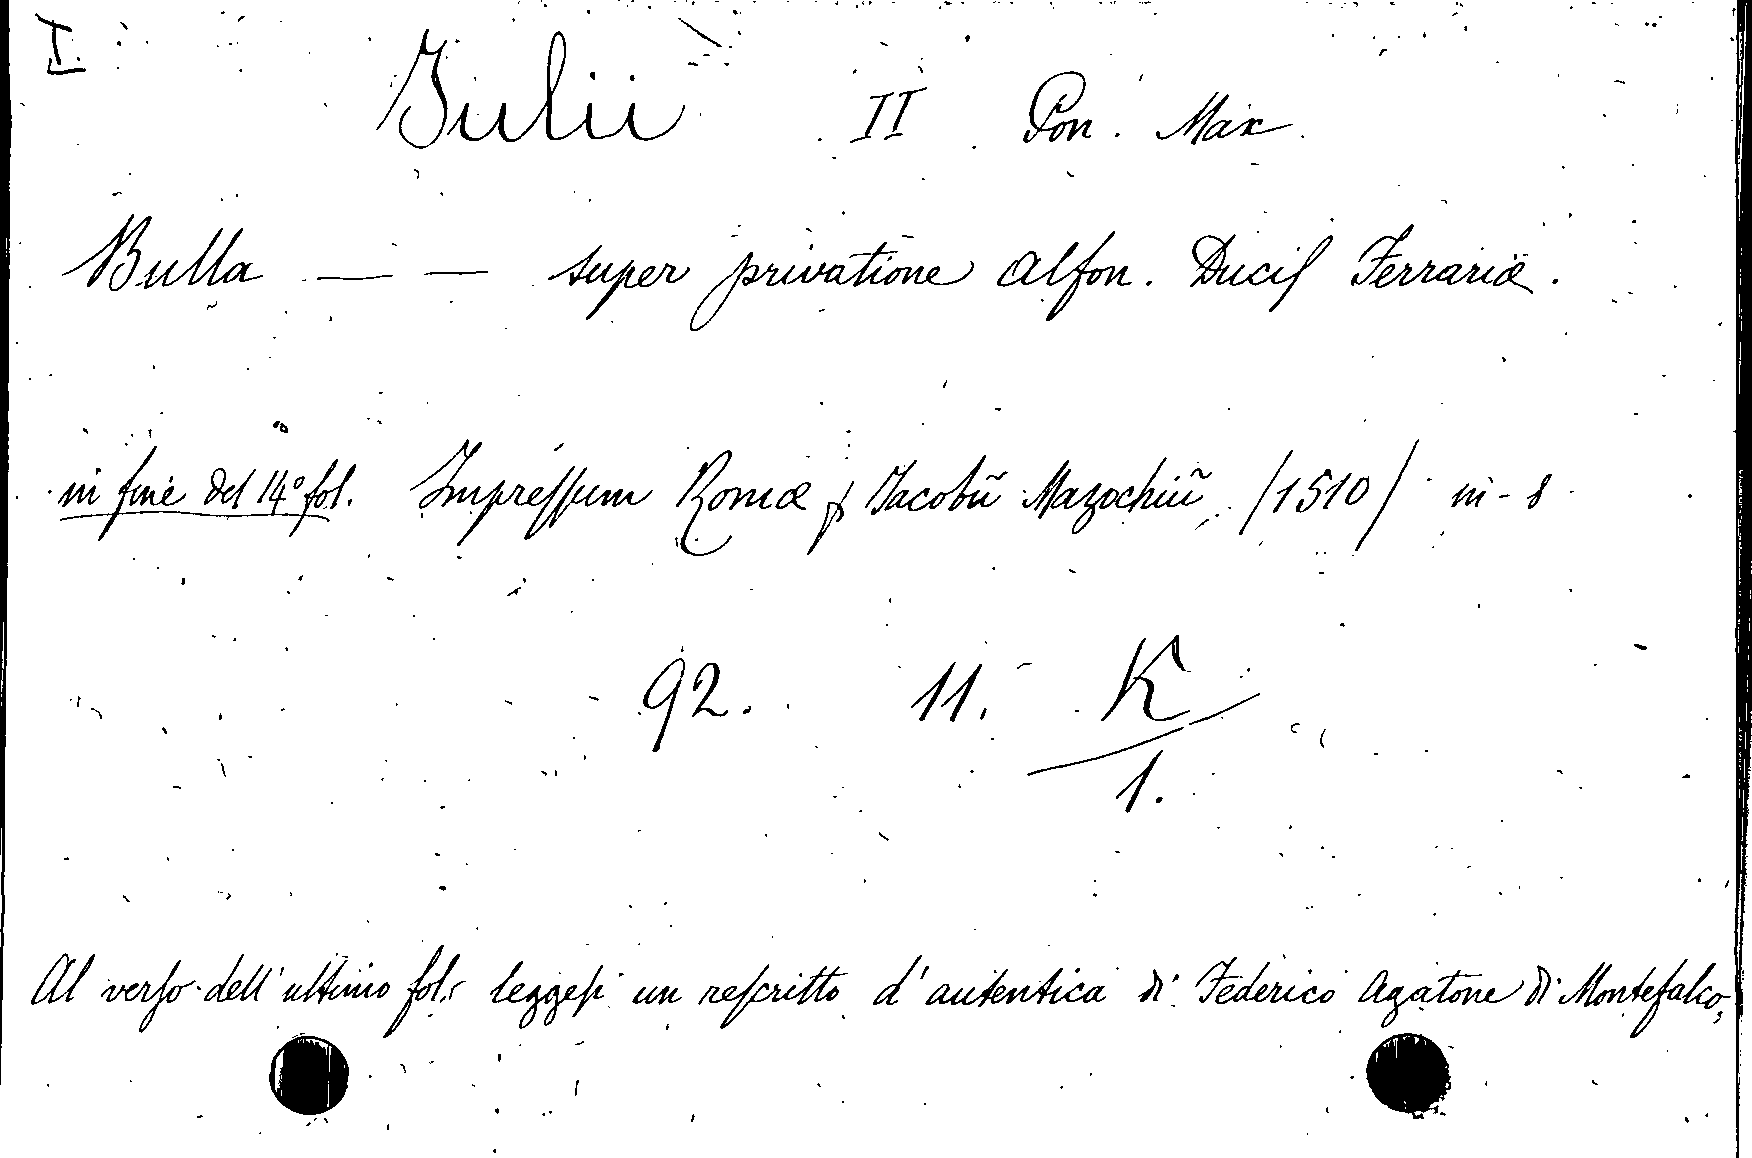 I.
Julii II Pon. Max
Bulla — — super privatione Alfon. Duciſ Ferrariæ.
in fine del 14° fol. Impreſſum Romæ ꝑ Jacobũ Mazochiũ, /1510/ in-8
92. 11. K
1.
Al verſo dell'ultimo fol. leggeſi un reſcritto d'autentica di Federico Agatone di Montefalco,